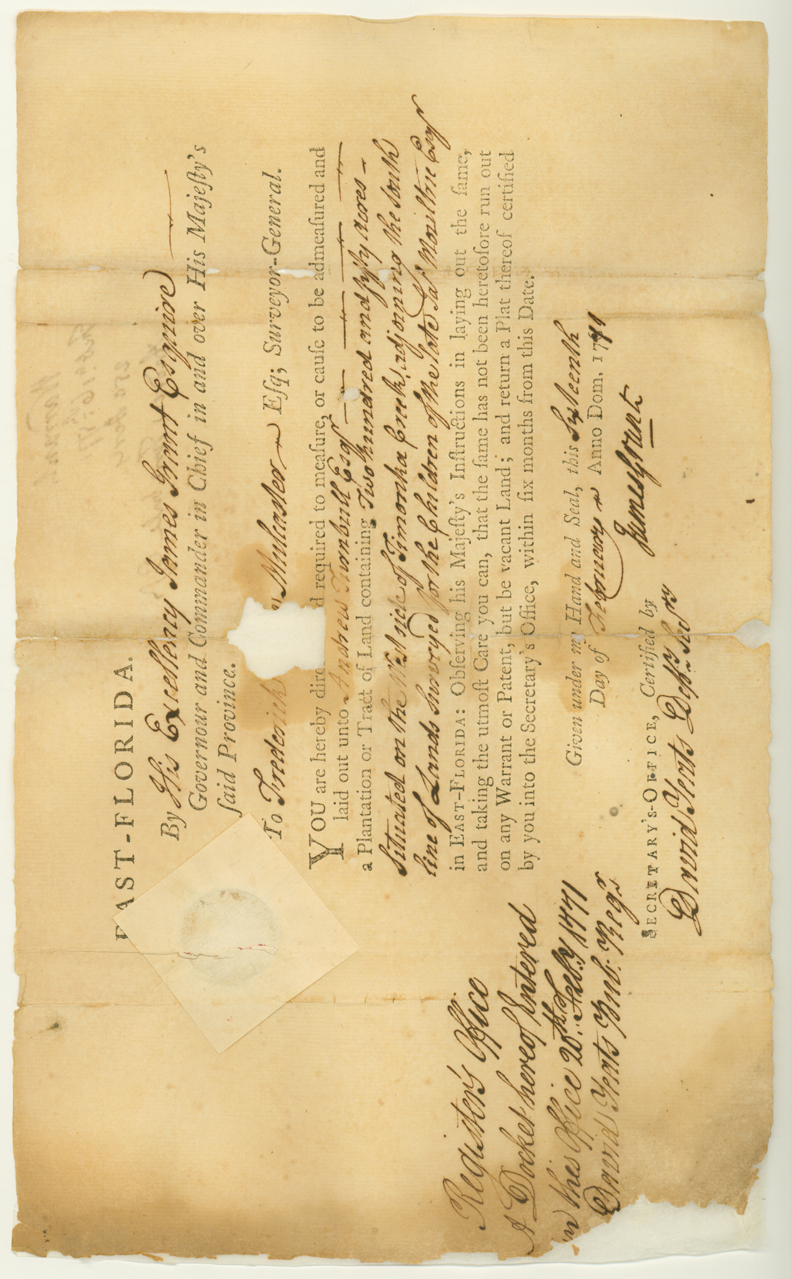 EAST-FLORIDA.
By His Excellency James Grant Esquire
Governour and Commander in Chief in and over His Majeſty's
ſaid Province.
To Frederick Mulcaster Eſq; Surveyor-General.
YOU are hereby dire d required to meaſure, or cauſe to be admeaſured and
laid out unto Andrew Turnbull Esqr
a Plantation or Tract of Land containing Two hundred and fifty Acres
Situated on the West side of Timonka Creek, adjoining the South
line of Lands Surveyed for the Children of the late Jas. Moultrie Esqr
in EAST-FLORIDA: Obſerving his Majeſty's Inſtructions in laying out the ſame,
and taking the utmoſt Care you can, that the ſame has not been heretofore run out
on any Warrant or Patent, but be vacant Land; and return a Plat thereof certified
by you into the Secretary's Office, within ſix months from this Date.
Given under my Hand and Seal, this Sixteenth
Day of February Anno Dom. 1771
James Grant
SECRETARY'S-OFFICE, Certified by
David Yeats Depy. Secry
Register's Office
A Docket hereof Entered
in this Office 20th. Feby. 1771
David Yeats Pub: Regr